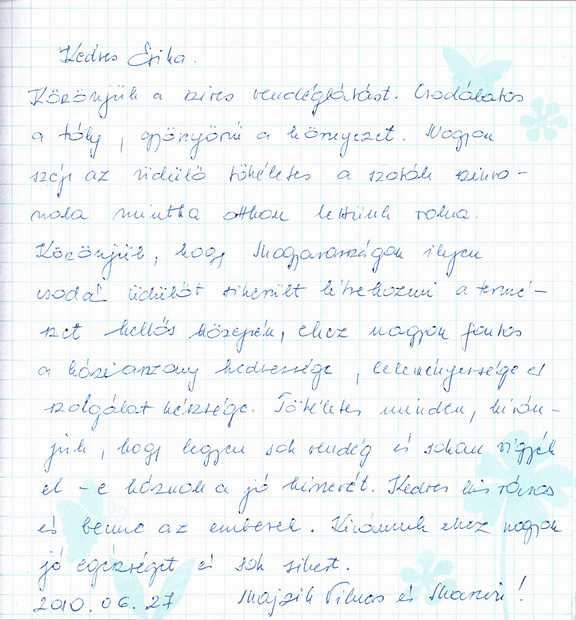 Kedves Erika.
Köszönjük a szíves vendéglátást. Csodálatos
a táj, gyönyörű a környezet. Nagyon
szép az üdülő tökéletes a szobák színvo-
nala mintha otthon lettünk volna.
Köszönjük, hogy Magyarországon ilyen
csoda üdülőt sikerült létrehozni a termé-
szet kellős közepén, ehez nagyon fontos
a háziasszony kedvessége, leleményessége és
szolgálat készsége. Tökéletes minden, kíván-
juk, hogy legyen sok vendég és sokan vigyék
el -e háznak a jó hírnevét. Kedves kis város
és benne az emberek. Kívánunk ehez nagyon
jó egészséget és sok sikert.
2010.06.27 Majzik Vilmos és !